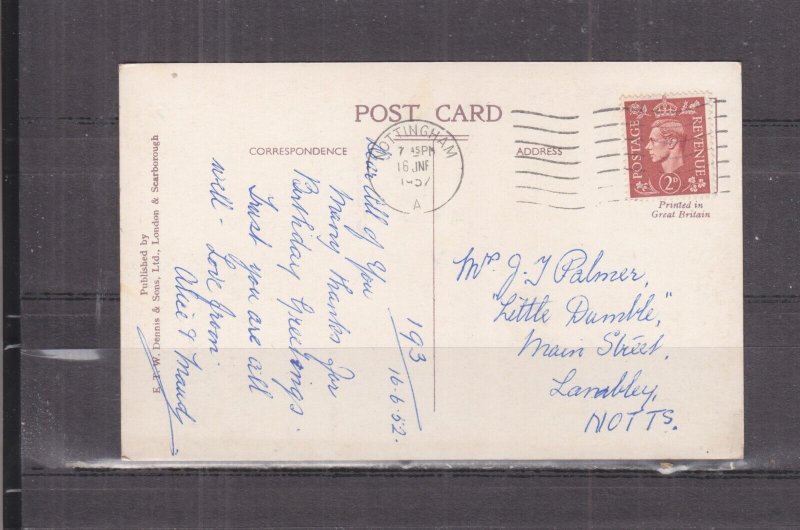 POST CARD
CORRESPONDENCE
ADDRESS
NOTTINGHAM
7 45 PM
16 JNE
A
POSTAGE
REVENUE
2D
Printed in
Great Britain
Published by
E. T. W. Dennis & Sons, Ltd., London & Scarborough
193
16.6.52.
Dear all of You
Many thanks for
Birthday Greetings.
Trust you are all
well - Love from
& Maud
Mrs J. J Palmer,
"Little Dumble,"
Main Street,
Lambley,
NOTTS.